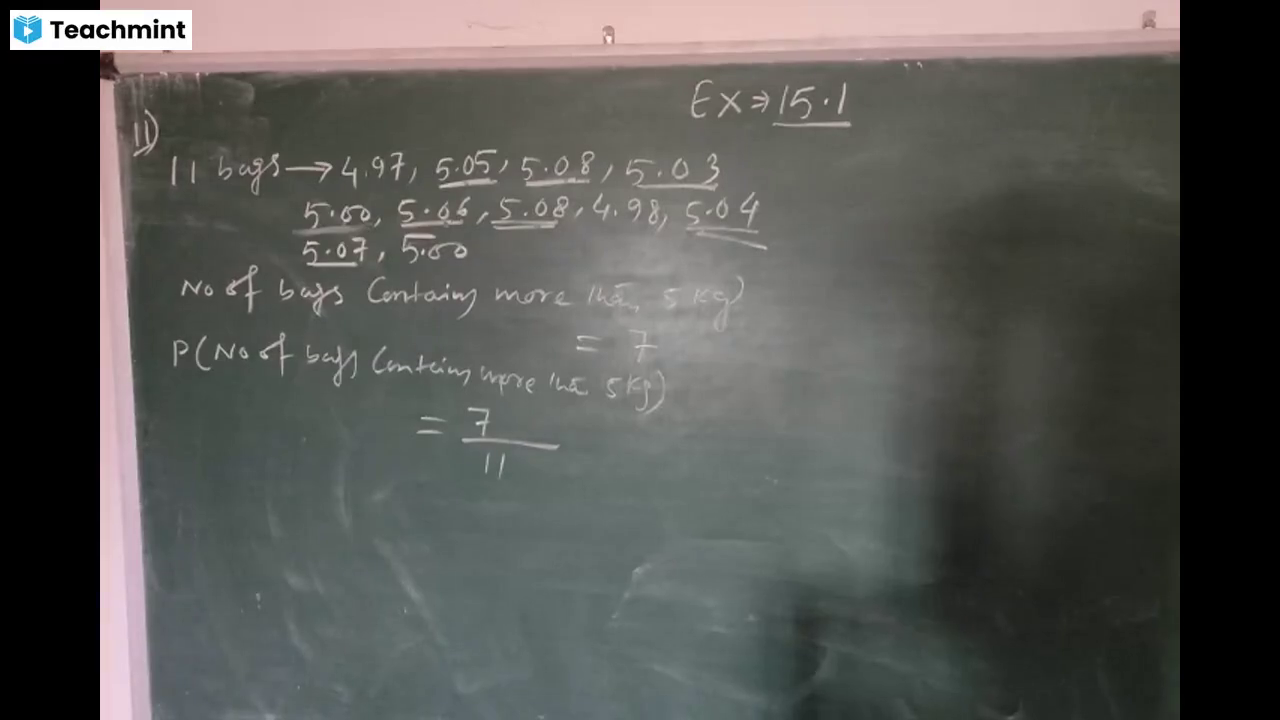 Teachmint
Ex ⇒ 15.1
11)
11 bags → 4.97, 5.05, 5.08, 5.03
5.00, 5.06, 5.08, 4.98, 5.04
5.07, 5.00
No of bags Contains more than 5 kg)
= 7
P(No of bags Contains more than 5 kg)
= 7
11